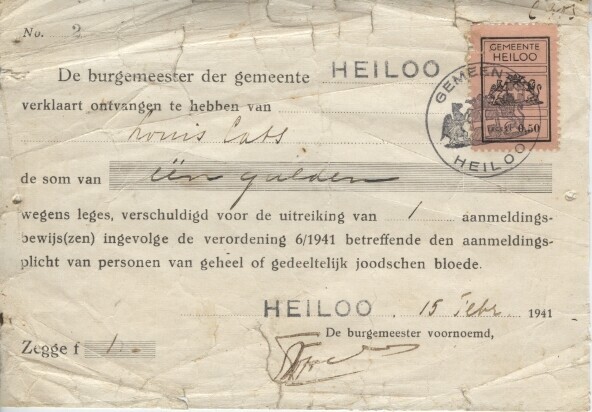 No. 2
De burgemeester der gemeente HEILOO
verklaart ontvangen te hebben van
Louis Cats
de som van één gulden
wegens leges, verschuldigd voor de uitreiking van 1 aanmeldings-
bewijs(zen) ingevolge de verordening 6/1941 betreffende den aanmeldings-
plicht van personen van geheel of gedeeltelijk joodschen bloede.
HEILOO, 15 Febr. 1941
De burgemeester voornoemd,
Zegge f 1.-
GEMEENTE
HEILOO
0.50
GEMEEN
HEILOO